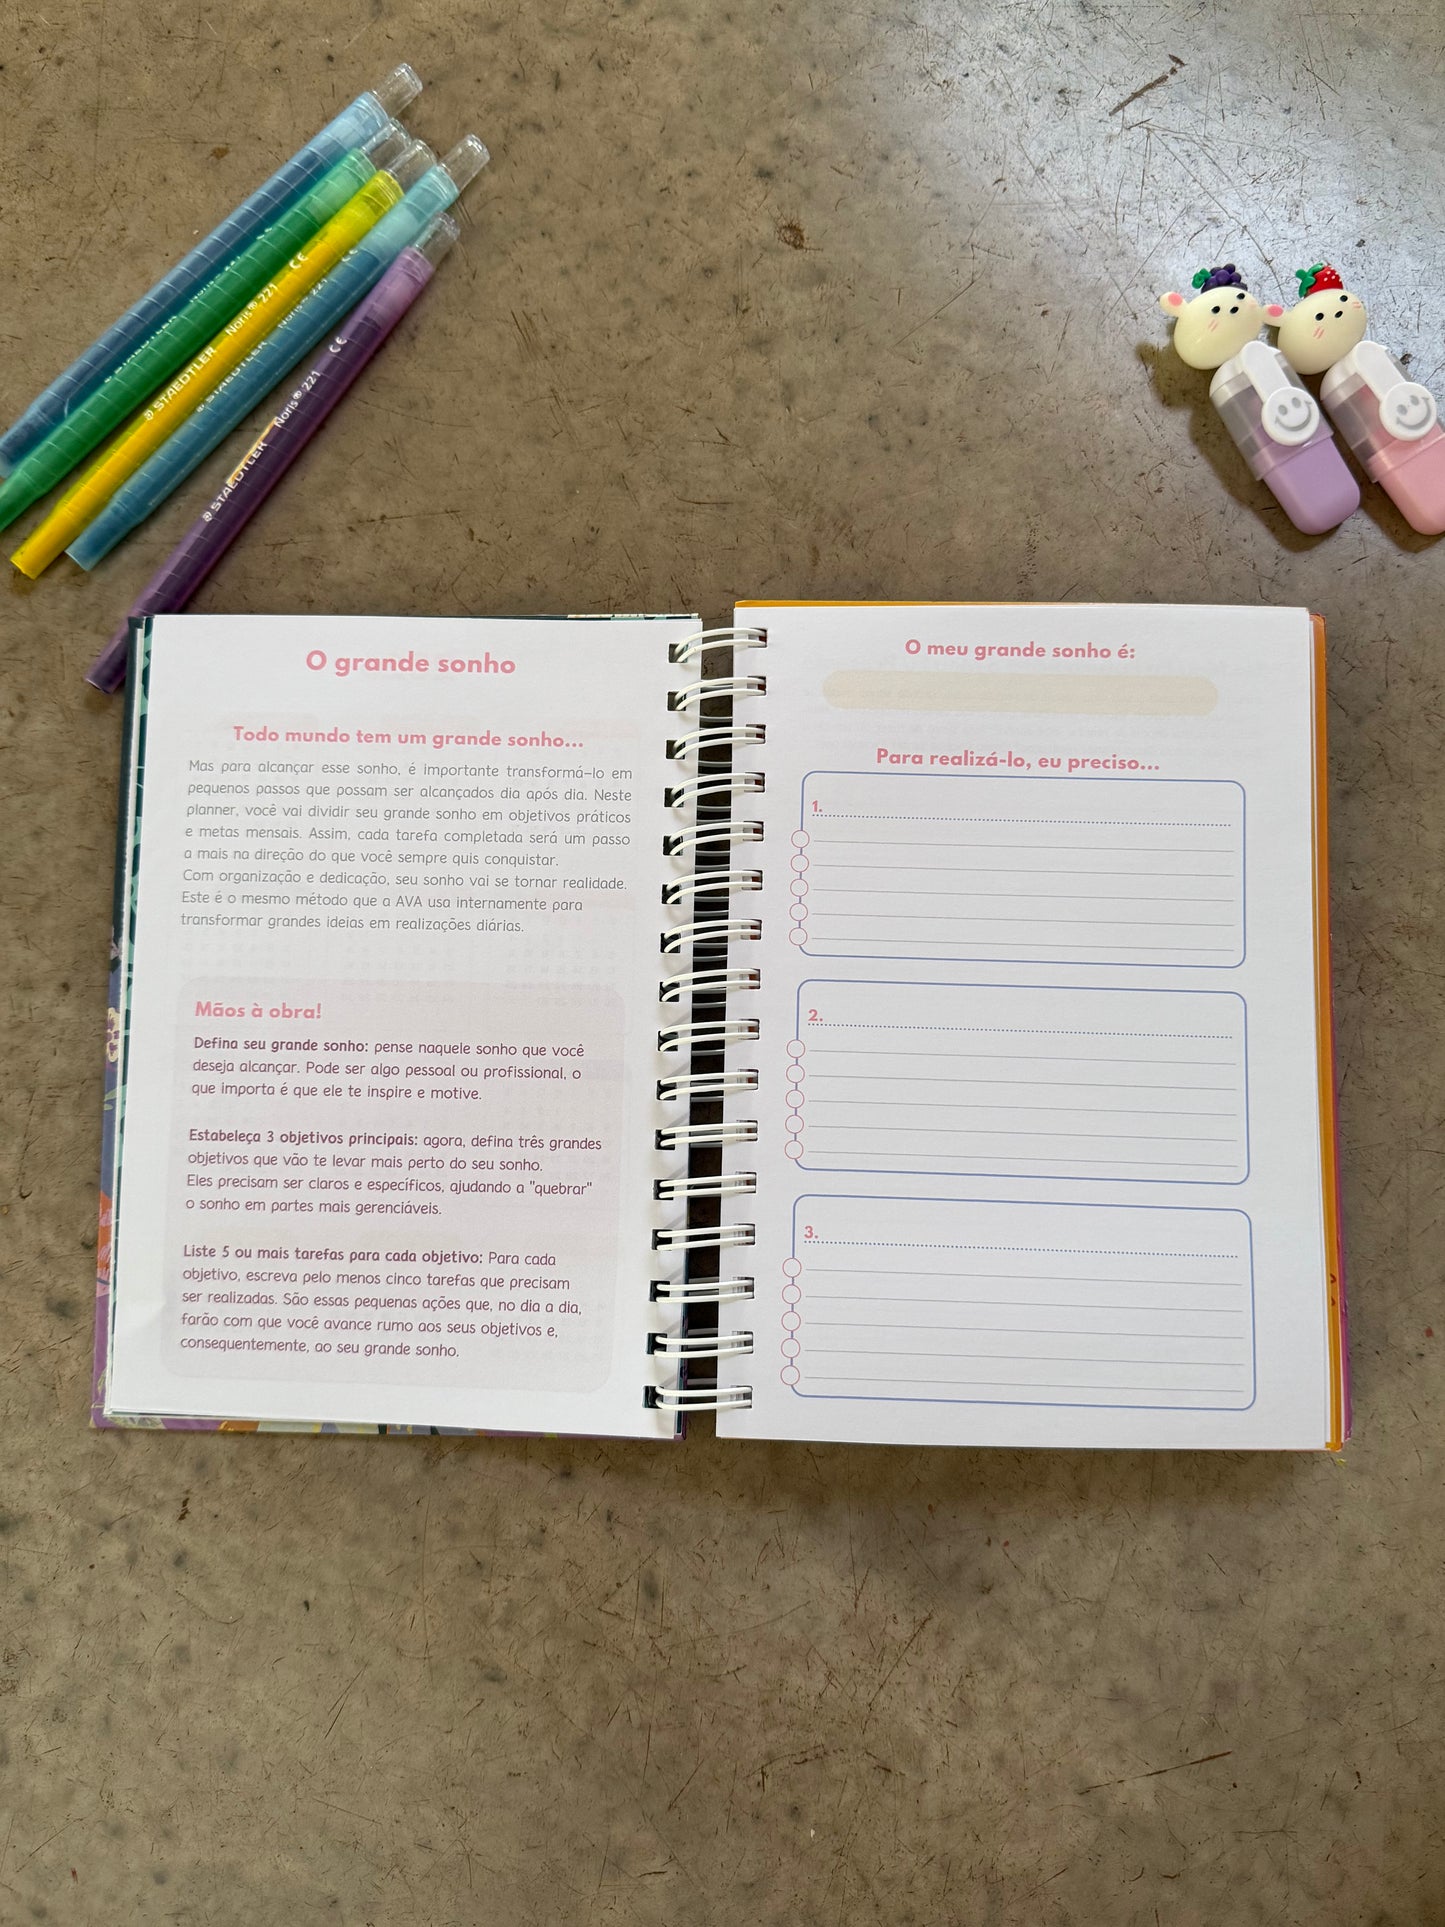 STAEDTLER Noris® 221 CE
STAEDTLER Noris® 221 CE
O grande sonho
Todo mundo tem um grande sonho...
Mas para alcançar esse sonho, é importante transformá-lo em
pequenos passos que possam ser alcançados dia após dia. Neste
planner, você vai dividir seu grande sonho em objetivos práticos
e metas mensais. Assim, cada tarefa completada será um passo
a mais na direção do que você sempre quis conquistar.
Com organização e dedicação, seu sonho vai se tornar realidade.
Este é o mesmo método que a AVA usa internamente para
transformar grandes ideias em realizações diárias.
Mãos à obra!
Defina seu grande sonho: pense naquele sonho que você
deseja alcançar. Pode ser algo pessoal ou profissional, o
que importa é que ele te inspire e motive.
Estabeleça 3 objetivos principais: agora, defina três grandes
objetivos que vão te levar mais perto do seu sonho.
Eles precisam ser claros e específicos, ajudando a "quebrar"
o sonho em partes mais gerenciáveis.
Liste 5 ou mais tarefas para cada objetivo: Para cada
objetivo, escreva pelo menos cinco tarefas que precisam
ser realizadas. São essas pequenas ações que, no dia a dia,
farão com que você avance rumo aos seus objetivos e,
consequentemente, ao seu grande sonho.
O meu grande sonho é:
Para realizá-lo, eu preciso...
1.
2.
3.